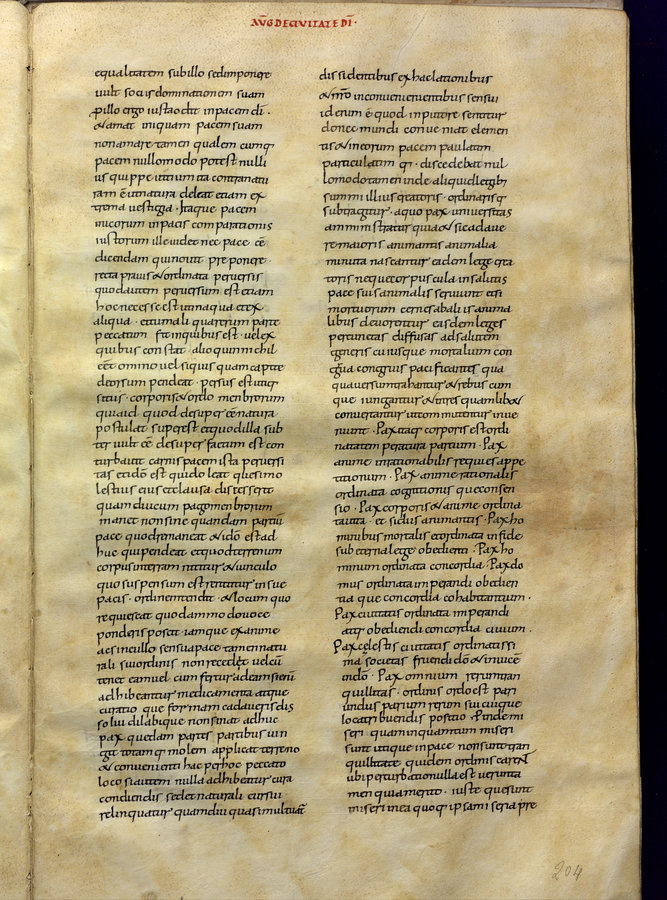 AUG DE CIVITATE DI
equalitatem sub illo sed imponere
vult sociis dominationem suam
p illo ergo iusta odit in pacem di.
& amat iniquam pacem suam
non amare tamen qualem cumq;
pacem nullo modo potest nulli
us quippe uitium ita contra natu
ram ē ut natura deleat etiam ex
trema uestigia. Itaque pacem
iniquorum in pacis comparationis
iustorum ille uidet nec pace cē
dicendam qui nouit preponere
recta prauis & ordinata peruersis
quod autem peruersum est etiam
hoc necesse est ut in aqua et ex
aliqua. et cum ali quarerum parte
peccatum sit in quibus est. vel ex
quibus constat. alioquin nichil
cēt omnino vel si quis quam capite
deorsum pendeat. persus est utiq;
situs. corporis & ordo menbrorum
quia id quod desuper cē natura
postulat super est et quod illa sub
ter uult cē desuper factum est con
turbauit carnis pacem ista peruersi
tas et idō est quidoleat quesimo
lestius eius et clausa discesserit
quam diu cum pagomenbrorum
manet non sine quandam partiū
pace quod remaneat & idō est ad
huc qui pendeat et quod terrenum
corpus in terram nititur & uinculo
quo suspensum est renititur in sue
pacis. ordinem tendit. & locum quo
requiescat quo dammodo uoce
ponderis poscit. iamque exanime
ac sine ullo sensu a pace tamen natu
rali sui ordinis non recedet vel cū
tenet eam uel cum fertur ad eam si enī
adhibeantur medicamenta atque
curatio que formam cadaueris dis
solui dilabi que non sinat adhuc
pax quedam partes partibus iun
git totamq; molem applicat terreno
& conuenienti hac per hoc peccato
loco si autem nulla adhibeatur cura
condiendis sed et naturali cursui
relinquatur quamdiu quasi multuāt
dissidentibus exhaelationibus
& nr̄o inconuenienentibus sensui
id enim ē quod inputore sentitur
donec mundi conueniat elemen
tis & in eorum pacem paulatim
particulatim q;. discedebat nul
lomodo tamen inde aliquid legib;
summi illius creatoris. ordinarisq;
subtragitur. a quo pax uniuersitas
amministratur quia & sic adaue
re maioris animantis animalia
minuta nascantur eadem lege crea
toris neque corpuscula in salutis
pace suis animalis seruiunt etsi
mortuorum cernes ab aliis anima
libus deuorentur easdem leges
per cunctas diffusas ad salutem
generis cuiusque mortalium con
grua congruis pacificantes qua
quauersum trahantur & rebus cum
que iungantur & in res quamlib&
conuerantur ut commutentur inue
niunt. Pax itaq; corporis est ordi
natatem peratura partium. Pax
anime inrationabilis requies appe
titionum. Pax anime rationalis
ordinata cogitionis que consen
sio. Pax corporis & anime ordina
ta uita. et si dius animantis. Pax ho
minibus mortalis et ordinata in fide
sub eterna lege obedienti. Pax ho
minum ordinata concordia. Pax do
mus ordinata imperandi obedien
tia que concordia cohabitantium.
Pax ciuitatis ordinata imperandi
atq; obediendi concordia ciuium.
Pax cęlestis ciuitatis ordinatissi
ma societas fruendi dō & inuicē
indō. Pax omnium rerum tran
quillitas. ordinis ordo est pari
undus parium rerum sui cuique
loca tribuendis positio. Pinde mi
seri quam inquantum miseri
sunt utique in pace non sunt tran
quilitate quidem ordinis carent
ubi perturbatio nulla est verunta
men quia merito. iuste que sunt
miseri in ea quoq; ipsa miseria pre
204